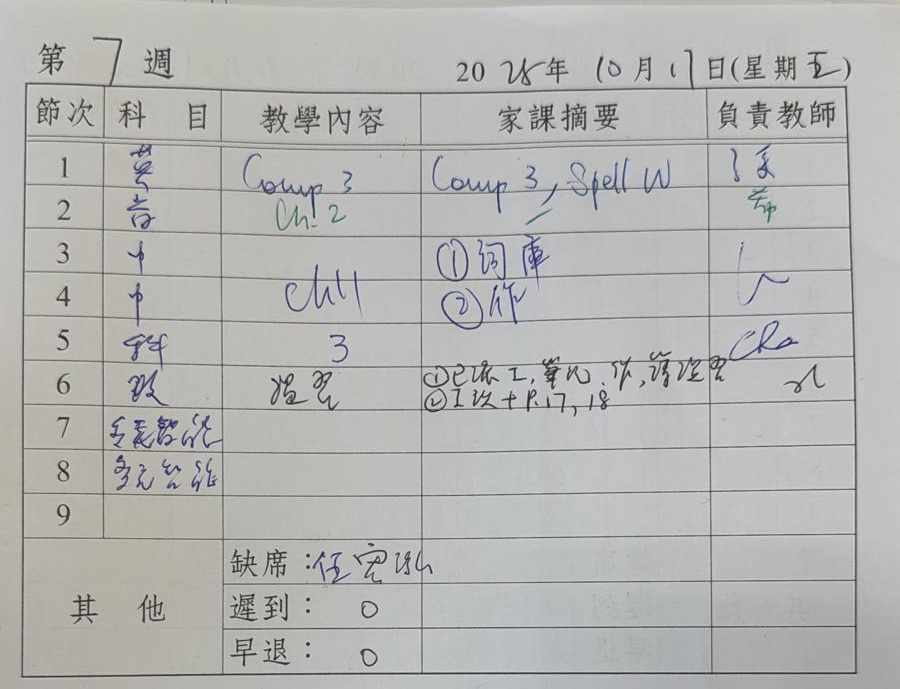 第 7 週 2025年 10月 17日(星期五)
節次 科 目 教學內容 家課摘要 負責教師
1 英 Comp 3 Comp 3, Spell W
2 音 Ch. 2
3 中 ① 詞庫
4 中 ch11 ② 作
5 科 3 Cha
6 數 溫習 ① 已派工, 單元, 作, 溫習 ② 工 P.17, 18
7 多元智能
8 多元智能
9
其 他
缺席：任
遲到： 0
早退： 0